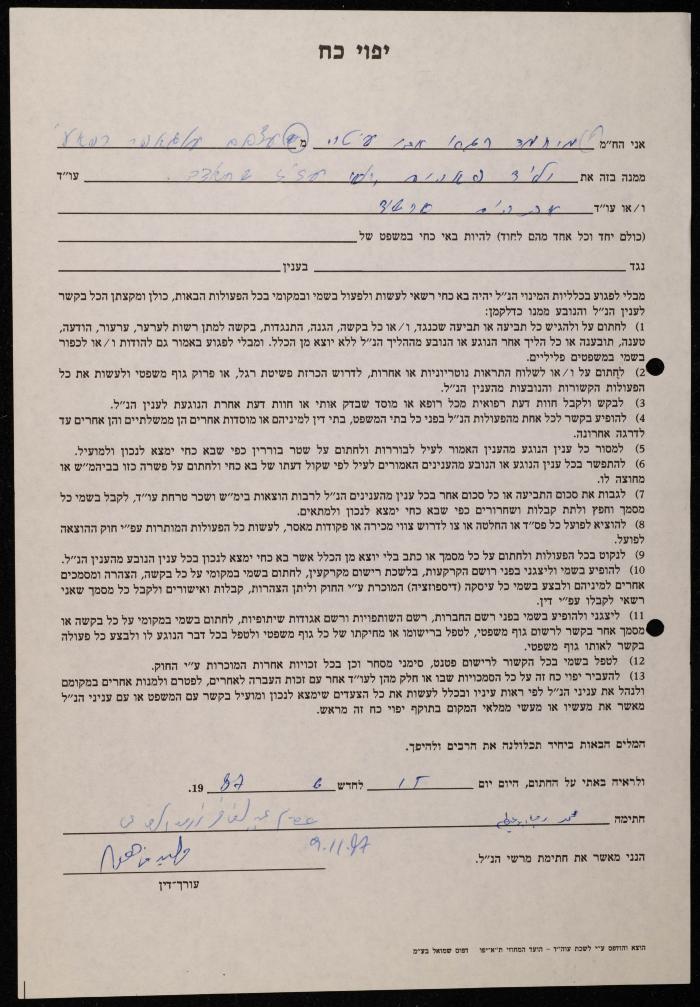 יפוי כח
אני הח״מ מוחמד אבו מ
ממנה בזה את עו״ד
ו/או עו״ד
(כולם יחד וכל אחד מהם לחוד) להיות באי כחי במשפט של
נגד בענין
מבלי לפגוע בכלליות המינוי הנ״ל יהיה בא כחי רשאי לעשות ולפעול בשמי ובמקומי בכל הפעולות הבאות, כולן ומקצתן הכל בקשר
לענין הנ״ל והנובע ממנו כדלקמן:
1) לחתום על ולהגיש כל תביעה או תביעה שכנגד, ו/או כל בקשה, הגנה, התנגדות, בקשה למתן רשות לערער, ערעור, הודעה,
טענה, תובענה או כל הליך אחר הנוגע או הנובע מההליך הנ״ל ללא יוצא מן הכלל. ומבלי לפגוע באמור גם להודות ו/או לכפור
בשמי במשפטים פליליים.
2) לחתום על ו/או לשלוח התראות נוטריוניות או אחרות, לדרוש הכרזת פשיטת רגל, או פרוק גוף משפטי ולעשות את כל
הפעולות הקשורות והנובעות מהענין הנ״ל.
3) לבקש ולקבל חוות דעת רפואית מכל רופא או מוסד שבדק אותי או חוות דעת אחרת הנוגעת לענין הנ״ל.
4) להופיע בקשר לכל אחת מהפעולות הנ״ל בפני כל בתי המשפט, בתי דין למיניהם או מוסדות אחרים הן ממשלתיים והן אחרים עד
לדרגה אחרונה.
5) למסור כל ענין הנוגע מהענין האמור לעיל לבוררות ולחתום על שטר בוררין כפי שבא כחי ימצא לנכון ולמועיל.
6) להתפשר בכל ענין הנוגע או הנובע מהענינים האמורים לעיל לפי שקול דעתו של בא כחי ולחתום על פשרה כזו בביהמ״ש או
מחוצה לו.
7) לגבות את סכום התביעה או כל סכום אחר בכל ענין מהענינים הנ״ל לרבות הוצאות בימ״ש ושכר טרחת עו״ד, לקבל בשמי כל
מסמך וחפץ ולתת קבלות ושחרורים כפי שבא כחי ימצא לנכון ולמתאים.
8) להוציא לפועל כל פס״ד או החלטה או צו לדרוש צווי מכירה או פקודות מאסר, לעשות כל הפעולות המותרות עפ״י חוק ההוצאה
לפועל.
9) לנקוט בכל הפעולות ולחתום על כל מסמך או כתב בלי יוצא מן הכלל אשר בא כחי ימצא לנכון בכל ענין הנובע מהענין הנ״ל.
10) להופיע בשמי וליצגני בפני רושם הקרקעות, בלשכת רישום מקרקעין, לחתום בשמי במקומי על כל בקשה, הצהרה ומסמכים
אחרים למיניהם ולבצע בשמי כל עיסקה (דיספוזציה) המוכרת ע״י החוק וליתן הצהרות, קבלות ואישורים ולקבל כל מסמך שאני
רשאי לקבלו עפ״י דין.
11) ליצגני ולהופיע בשמי בפני רשם החברות, רשם השותפויות ורשם אגודות שיתופיות, לחתום בשמי במקומי על כל בקשה או
מסמך אחר בקשר לרשום גוף משפטי, לטפל ברישומו או מחיקתו של כל גוף משפטי ולטפל בכל דבר הנוגע לו ולבצע כל פעולה
בקשר לאותו גוף משפטי.
12) לטפל בשמי בכל הקשור לרישום פטנט, סימני מסחר וכן בכל זכויות אחרות המוכרות ע״י החוק.
13) להעביר יפוי כח זה על כל הסמכויות שבו או חלק מהן לעו״ד אחר עם זכות העברה לאחרים, לפטרם ולמנות אחרים במקומם
ולנהל את עניני הנ״ל לפי ראות עיניו ובכלל לעשות את כל הצעדים שימצא לנכון ומועיל בקשר עם המשפט או עם עניני הנ״ל
מאשר את מעשיו או מעשי ממלאי המקום בתוקף יפוי כח זה מראש.
המלים הבאות ביחיד תכלולנה את הרבים ולהיפך.
ולראיה באתי על החתום, היום יום לחדש 87 19.
חתימה
9.11.87
הנני מאשר את חתימת מרשי הנ״ל.
עורך־דין
הוצא והודפס ע״י לשכת עוה״ד – הועד המחוזי ת״א־יפו דפוס שמואל בע״מ